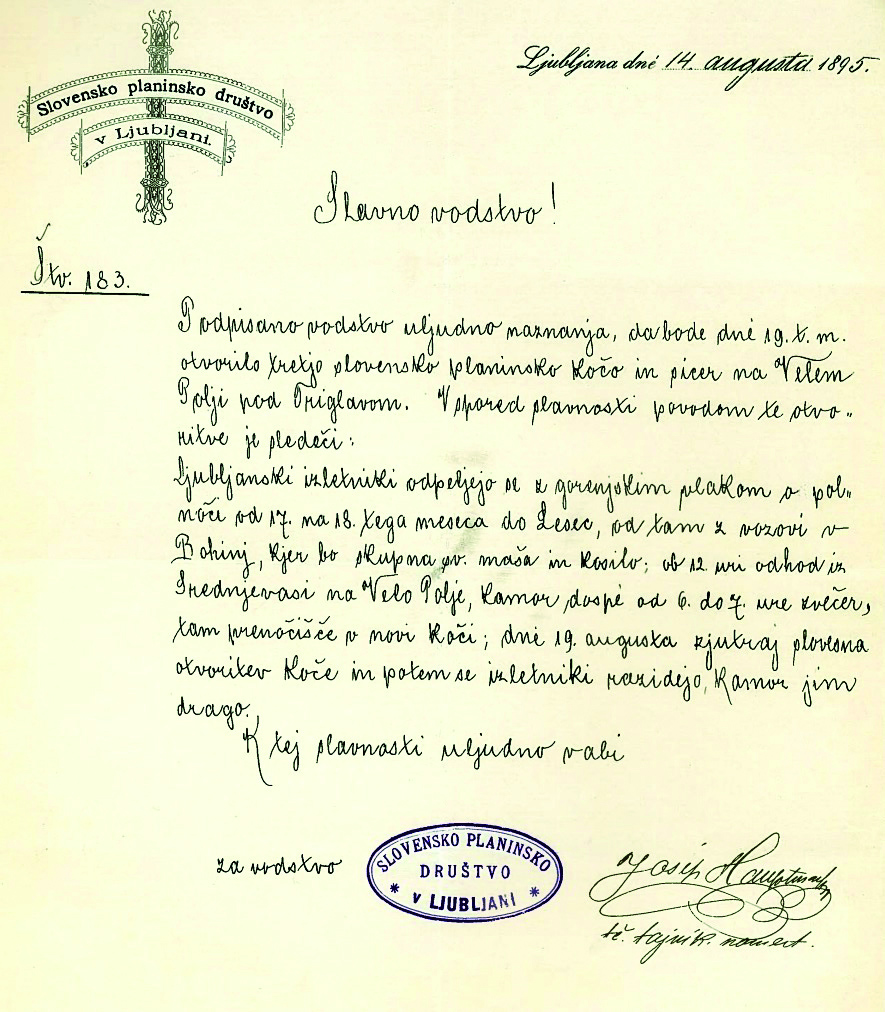 Slovensko planinsko društvo
v Ljubljani.
Ljubljana dné 14. augusta 1895.
Slavno vodstvo!
Štv. 183.
Podpisano vodstvo uljudno naznanja, da bode dné 19. t. m.
otvorilo tretjo slovensko planinsko kočo in sicer na Velem
Polji pod Triglavom. Vspored slavnosti povodom te otvo-
ritve je sledeči:
Ljubljanski izletniki odpeljejo se z gorenjskim vlakom o pol-
noči od 17. na 18. tega meseca do Lesec, od tam z vozovi v
Bohinj, kjer bo skupna sv. maša in kosilo; ob 12. uri odhod iz
Srednjevasi na Velo Polje, kamor dospé od 6. do 7. ure zvečer,
tam prenočišče v novi koči; dné 19. augusta zjutraj slovesna
otvoritev koče in potem se izletniki razidejo, kamor jim
drago.
K tej slavnosti uljudno vabi
za vodstvo
SLOVENSKO PLANINSKO
DRUŠTVO
* V LJUBLJANI *
Josip Hauptmann
tč. tajnik.